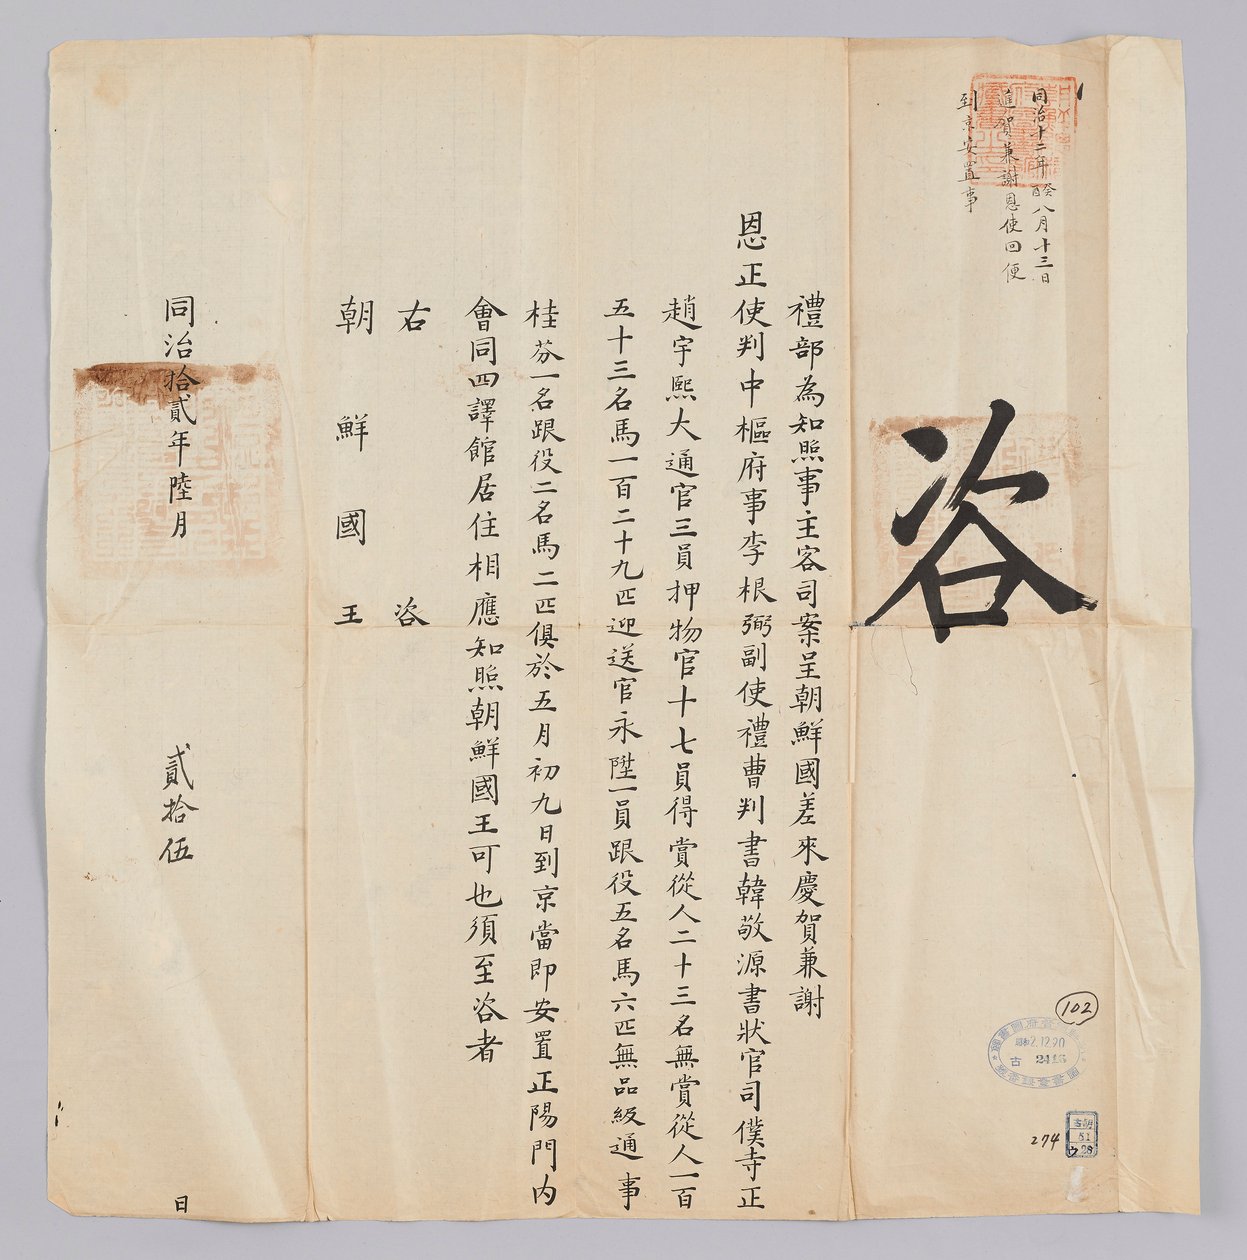 同治十二年癸酉八月十三日
進賀兼謝恩使回便
到京安置事
咨
禮部為知照事主客司案呈朝鮮國差來慶賀兼謝
恩正使判中樞府事李根弼副使禮曹判書韓敬源書狀官司僕寺正
趙宇熙大通官三員押物官十七員得賞從人二十三名無賞從人一百
五十三名馬一百二十九匹迎送官永陞一員跟役五名馬六匹無品級通事
桂芬一名跟役二名馬二匹俱於五月初九日到京當即安置正陽門內
會同四譯館居住相應知照朝鮮國王可也須至咨者
右咨
朝鮮國王
同治拾貳年陸月貳拾伍日
102
2.12.20
古 2416
274
古朝
51
ウ28